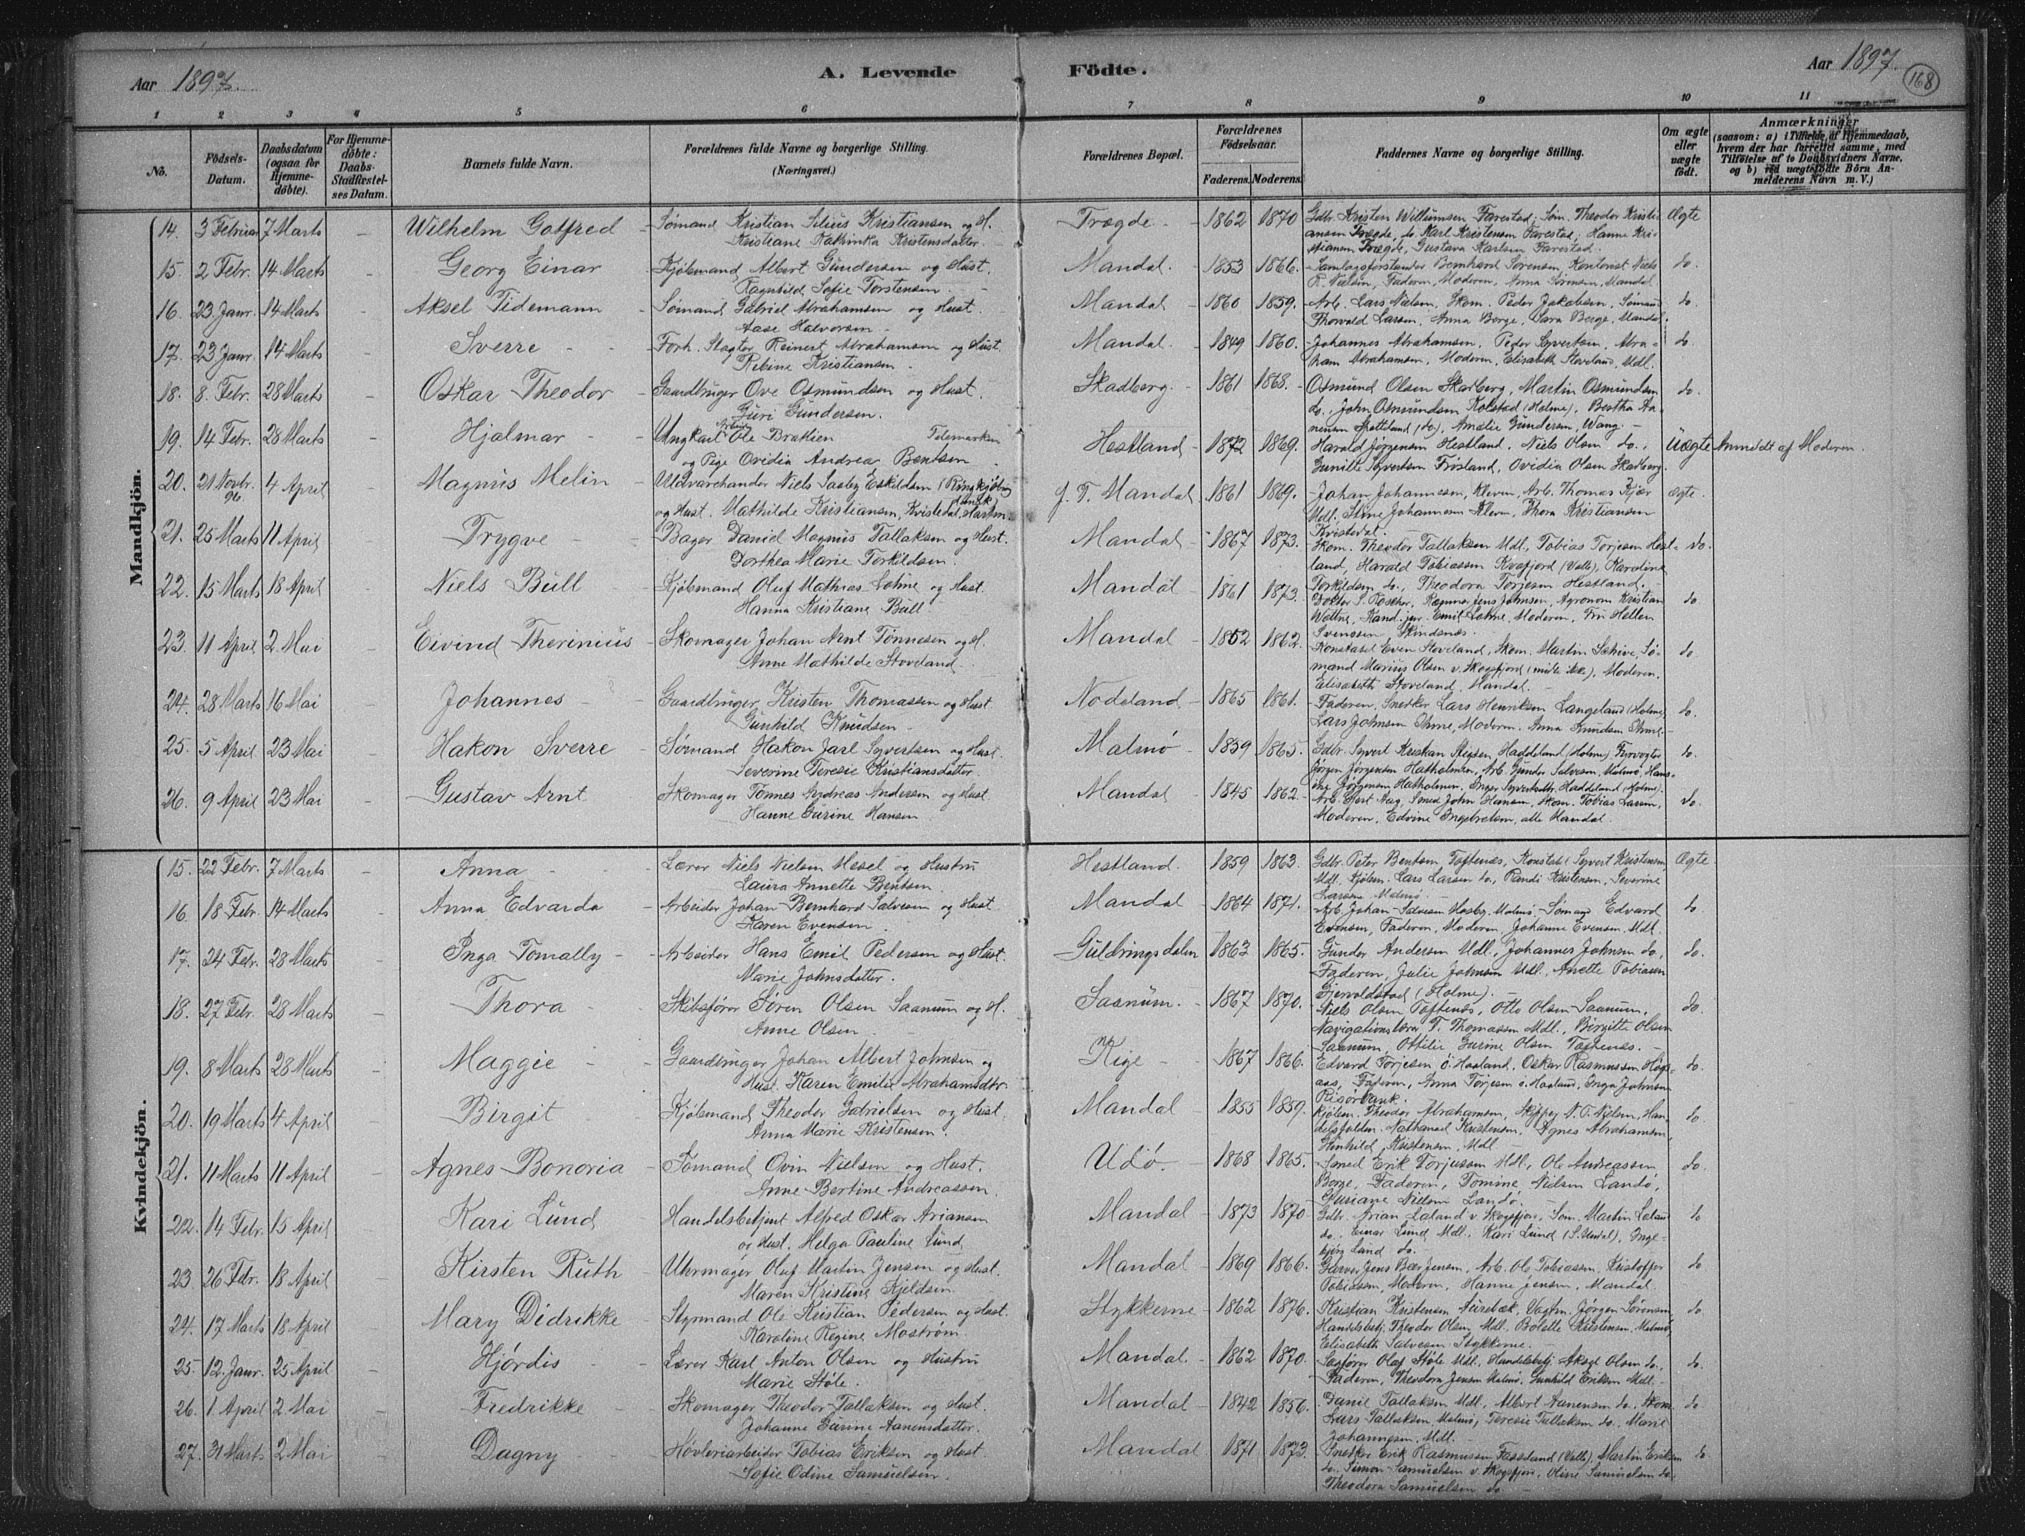 Aar 1897. A. Levende Födte. Aar 1897.
168
1 2 3 4 5 6 7 8 9 10 11
No. Födsels-Datum. Daabsdatum (ogsaa for Hjemmedöbte). For Hjemmedöbte: Daabs-Stadfæstelses Datum. Barnets fulde Navn. Forældrenes fulde Navne og borgerlige Stilling. (Næringsvei.) Forældrenes Bopæl. Forældrenes Födselsaar. Faderens. Moderens. Faddernes Navne og borgerlige Stilling. Om ægte eller uægte födt. Anmærkninger (saasom: a) i Tilfælde af Hjemmedaab, hvem der har forrettet samme, med Tilföielse af to Daabsvidners Navne, og b) ved uægtefödte Börn Anmelderens Navn m. V.)
Mandkjön.
14. 3 Februar 7 Marts - Wilhelm Gotfred - Sømand Kristian Silius Kristiansen og H. Trægde - 1862 1870 Gdbr. Kristen Willumsen Farestad, Søm. Theodor Kristi- Ægte
Kristiane Kathinka Kristensdatter. ansen Trægde, do. Karl Kristensen Farestad, Hanne Kri-
stiansen Trægde, Gustava Karlsen Farestad.
15. 2 Febr. 14 Marts - Georg Einar - Kjøbmand Albert Gundersen og Hust. Mandal. - 1853 1866. Samlagsforstander Bernhard Sørensen, Kontorist Niels do.
Ragnhild Sofie Torstensen. R. Nielsen, Faderen, Moderen, Anna Sørensen, Mandal.
16. 23 Janr. 14 Marts - Aksel Tidemann - Sømand Gabriel Abrahamsen og Hust. Mandal - 1860 1859. Arb. Lars Nielsen, Skom. Peder Jakobsen, Sømand do.
Aase Halvorsen - Thorvald Larsen, Anna Berge, Sara Berge, Mandal.
17. 23 Janr. 14 Marts - Sverre - Forh. Slagter Reinert Abrahamsen og Hust. Mandal - 1849 1860. Johannes Abrahamsen, Peder Syvertsen, Abra- do.
Kristiansen. ham Abrahamsen, Moderen, Elisabeth Stoveland, Mdl.
18. 8 Febr. 28 Marts - Oskar Theodor - Gaardbruger Ove Osmundsen og Hust. Skadberg - 1861 1868. Osmund Olsen Skarberg, Martin Osmundsen do.
Guri Gundersen. do., John Osmundsen Kolstad (Holme), Bertha Aa-
nensen (do), Amalie Gundersen, Wang.
19. 14 Febr. 28 Marts - Hjalmar - Ungkarl Arbeider Ole Brattien Telemarken Hestland - 1872 1869. Harald Jørgensen Hestland, Niels Olsen do., Uægte Anmeldt af Moderen.
og Pige Ovidia Andrea Bentsen Gunille Syvertsen Frøsland, Ovidia Olsen Skarberg.
20. 21 Novbr. 96. 4 April - Magnus Melin - Uldvarehandler Niels Eskildsen (Ringkjøbing p. T. Mandal 1861 1869. Johan Johannesen, Kleven, Arb. Thomas Kjær Ægte.
og Hust. Mathilde Kristiansen, Kvistedal, Mdl. Stine Johannesen Kleven, Thora Kristiansen
21. 25 Marts 11 April - Trygve - Bager Daniel Magnus Tallaksen og Hust. Mandal - 1867 1873. Skom. Theodor Tallaksen Mdl., Tobias Torjesen Hest- do.
Dorthea Marie Torkildsen. land, Harald Tobiassen Kvafjord (Valle), Karoline
Torkildsen do., Theodora Torjesen Hestland.
22. 15 Marts 18 April - Niels Bull - Kjøbmand Oluf Mathias Lohne og Hust. Mandal - 1861 1873. Agronom Kristian do.
Hanna Kristiane Bull Emil Lohne, Moderen, Fru Hellen
Svenssen,
23. 11 April 2 Mai - Eivind Therinius - Skomager Johan Arnt Tønnesen og H. Mandal - 1852 1862. Konstabel Even Stoveland, Skom. Martin Schive, Sø- do.
Anne Mathilde Stoveland. mand Marius Olsen v. Skogsfjord (møtte ikke), Moderen,
Elisabeth Stoveland, Mandal.
24. 28 Marts 16 Mai - Johannes - Gaardbruger Kristen Thomassen og Hust. Nodeland - 1865 1861. Faderen, Snedker Lars Henriksen Langeland (Holme) do.
Gunhild Knudsen Lars Johnsen Ohme, Moderen, Anna Knudsen Ohme.
25. 5 April 23 Mai - Hakon Sverre - Sømand Hakon Jarl Syvertsen og Hust. Malmø - 1839 1865. Gdbr. Syvert Kristian Haddeland (Holme), Fyrvogter do.
Severine Teresie Kristiansdatter. Jørgen Jørgensen Hatholmen, Arb. Gunder Salvesen, Malmø, Hans-
ine Jørgensen Hatholmen, Haddeland (Holme).
26. 9 April 23 Mai - Gustav Arnt - Skomager Tønnes Andreas Andersen og Hust. Mandal - 1845 1862. Smed John Hansen, Skom. Tobias Larsen, do.
Hanne Gurine Hansen Moderen, Edvine Ingebretsen, alle Mandal.
Kvindekjön.
15. 22 Febr. 7 Marts - Anna - Lærer Niels Nielsen Mesel og Hustru Hestland. 1859 1863. Gdbr. Peter Bentsen Toftenæs, Konstabel Syvert Kristensen, Ægte
Laura Annette Bentsen. Mdl. Lars Larsen do., Randi Kristensen, Severine
Larsen Malmø.
16. 18 Febr. 14 Marts - Anna Edvarda - Arbeider Johan Bernhard Salvesen og Hust. Mandal - 1864 1871. Arb. Johan Salvesen Hosbg. Malmø, Sømand Edvard do.
Karen Evensen. Evensen, Faderen, Moderen, Johanne Evensen, Mdl.
17. 24 Febr. 28 Marts - Inga Tomally - Arbeider Hans Emil Pedersen og Hust. Guldringsdalen 1863 1865. Gunder Andersen Mdl., Johannes Johnsen do., do.
Marie Johnsdatter. Faderen, Julie Johnsen Mdl., Anette Tobiasen
Gjervoldstad (Holme).
18. 27 Febr. 28 Marts - Thora - Skibsfører Søren Olsen Saanum og H. Saanum. - 1867 1870. Niels Olsen Toftenæs, Otto Olsen Saanum, do.
Anne Olsen. Navigationslærer T. Thomassen Mdl., Birgitte Olsen
Saanum, Otilie Gurine Olsen Toftenæs.
19. 8 Marts 28 Marts - Maggie - Gaardbruger Johan Albert Johnsen og Kige - 1867 1866. Edvard Torjesen ö. Haaland, Oskar Rasmussen Høg- do.
Hust. Karen Emilie Abrahamsdtr. aas, Faderen, Anna Torjesen ö. Haaland, Inga Johnsen
Risørbank.
20. 19 Marts 4 April - Birgit - Kjøbmand Theodor Gabrielsen og Hust. Mandal - 1855 1859. Kjøbm. Theodor Abrahamsen, N. O. Nielsen, Han- do.
Anna Marie Kristensen. delsfuldm. Nathanael Kristensen, Agnes Abrahamsen,
Gunhild Kristensen, Mdl.
21. 11 Marts 11 April - Agnes Bonoria - Sømand Ovin Nielsen og Hust. Udø. - 1868 1865. Smed Erik Torjussen Mdl., Ole Andreassen do.
Anne Bertine Andreassen. Berge, Faderen, Tomine Nielsen Landø,
Guriane Nielsen Landø.
22. 14 Febr. 15 April - Kari Lund - Handelsbetjent Alfred Oskar Ariansen Mandal - 1873 1870. Gdbr. Arian Laland v. Skogsfjord, Søm. Martin Laland do
og Hust. Helga Pauline Lund do. Einar Lund Mdl., Kari Lund (S. Undal), Inge-
bjørg Lund do.
23. 26 Febr. 18 April - Kirsten Ruth - Uhrmager Oluf Martin Jensen og Hust. Mandal - 1869 1866. Garver Jens Bær Jensen, Arb. Ole Tobiassen, Kristoffer do
Maren Kristine Kjeldsen. Tobiassen, Moderen, Hanne Jensen, Mandal.
24. 17 Marts 18 April - Mary Didrikke - Styrmand Ole Kristian Pedersen og Hust. Stykkerne - 1862 1876. Kristian Kristensen Aurebæk, Vagtm. Jørgen Sørensen, do.
Karoline Regine Mostrøm. Handelsbetj. Theodor Olsen Mdl. Bolette Kristensen, Malmø,
Elisabeth Salvesen Stykkerne.
25. 12 Janr. 25 April - Hjørdis - Lærer Karl Anton Olsen og Hustru Mandal. - 1862 1870. Sagfører Olaf Støle Mdl., Handelsbetj. Aksel Olsen do., do.
Marie Støle. Faderen, Theodora Jensen Malmø, Gunhild Eriksen Mdl.
26. 1 April 2 Mai - Fredrikke - Skomager Theodor Tallaksen og Hust. Mandal - 1842 1856. Daniel Tallaksen Mdl., Albert Aanensen do., Skom. do
Johanne Gurine Aanensdatter. Lars Tallaksen Malmø, Teresie Tallaksen do., Marie
Johannesen, Mdl.
27. 31 Marts 2 Mai - Dagny - Høvleriarbeider Tobias Eriksen og Hust. Mandal - 1871 1873. Snedker Erik Rasmussen Fassland (Valle), Martin Eriksen do.
Sofie Odine Samuelsen. do. Simon Samuelsen v. Skogsfjord, Oline Samuelsen do.
Theodora Samuelsen do.